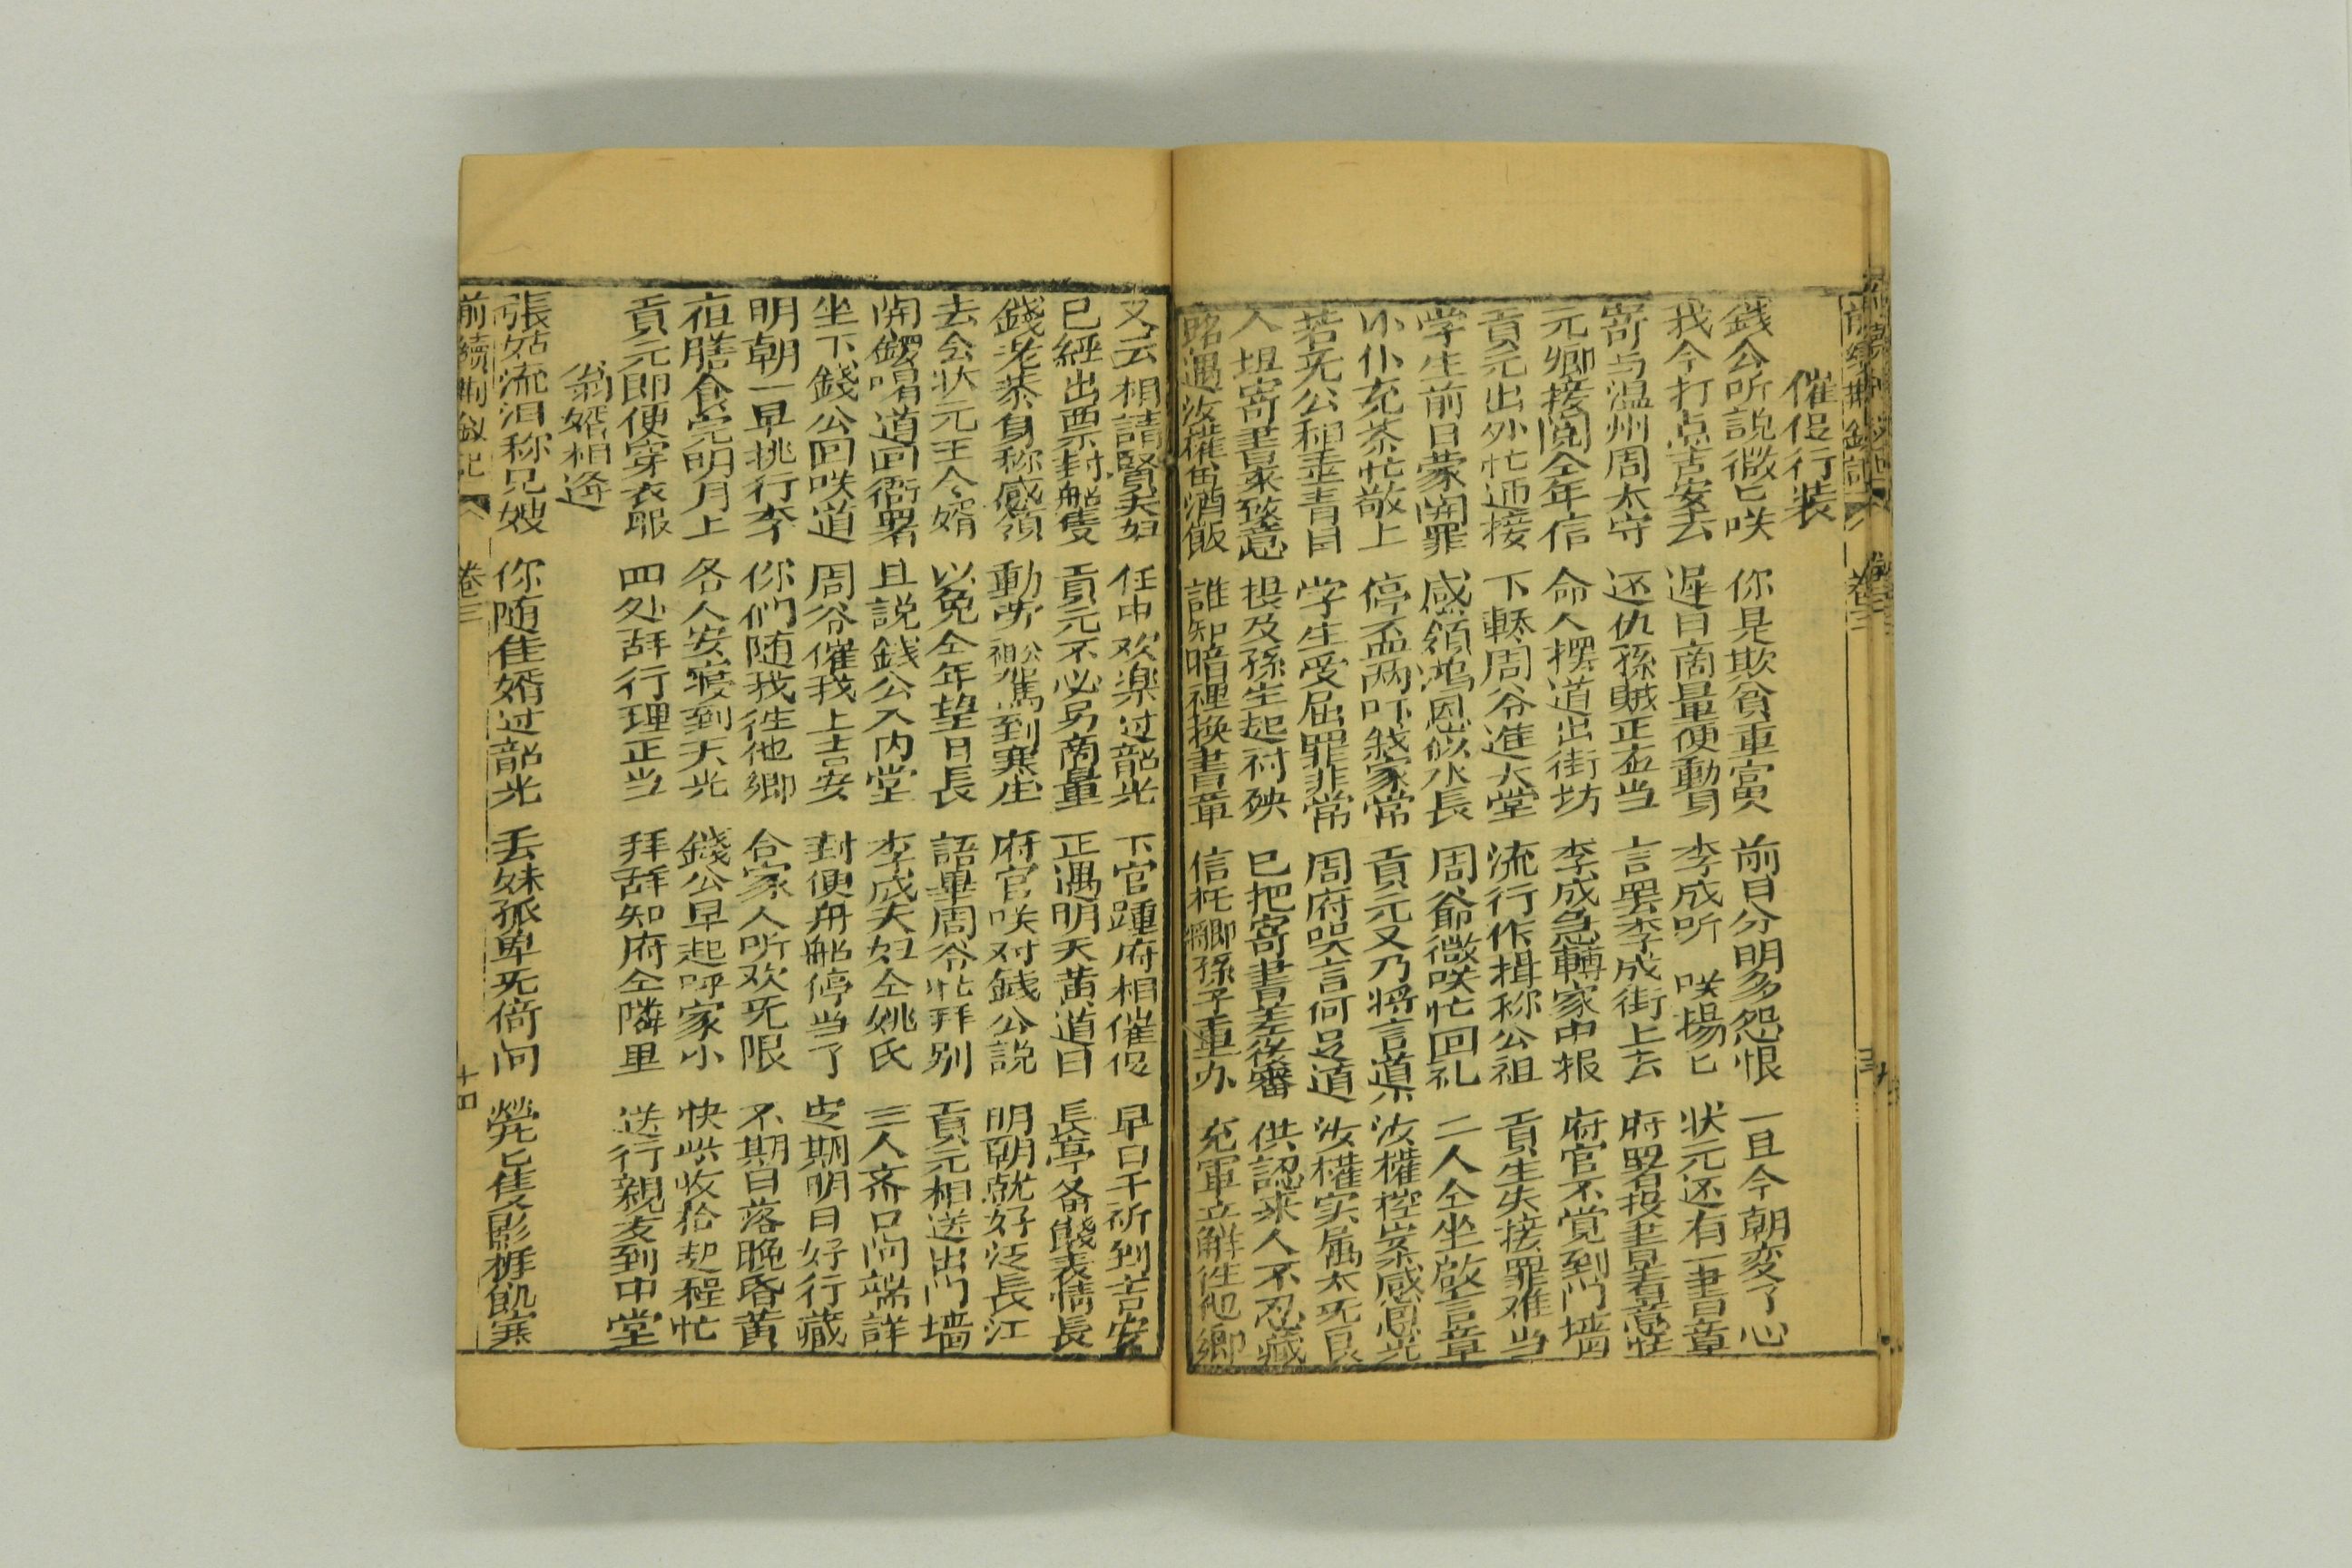 前續荆釵記 卷三
催促行装
錢公听説微匕咲 你是欺貧重富人 前日分明多怨恨 一旦今朝变了心
我今打点吉安去 遅日商量便動身 李成听咲揚匕 状元还有一書章
寄与温州周太守 还仇孫賊正应当 言罢李成街上去 府署投書見着意忙
元卿接閲仝年信 命人摆道出街坊 李成急轉家中报 府官不覚到门墙
貢元出外忙迊接 下轎周爷進大堂 流行作揖称公祖 貢生失接罪难当
学生前日蒙開罪 感領鴻恩似水長 周爺微咲忙回礼 二人仝坐啟言章
小仆充茶忙敬上 停盃两吓叙家常 貢元又乃将言道 汝權控案感恩光
若无公祖垂青目 学生受屈罪非常 周府哭言何足道 汝權实属太无良
人坦寄書來致意 提及孫生起祸殃 已把寄書差役審 供認來人不忍藏
路遇汝權魚酒飯 誰知暗裡换書章 信托卿孫子重办 充軍立觧徃他卿
又云相請賢夫妇 任中欢楽过韶光 下官踵府相催促 早日干祈到吉安
已經出票封船隻 貢元不必另商量 正遇明天黄道日 長亭备餞表情長
錢老恭身称感領 動労公祖駕到寒庄 府官咲对錢公説 明朝就好泛長江
去会状元王令婿 以免仝年望日長 語畢周爷忙拜别 貢元相送出门墙
開鑼喝道囬衙署 且説錢公入内堂 李成夫妇仝姚氏 三人齐口问端詳
坐下錢公回咲道 周爷催我上吉安 封便舟船停当了 定期明日好行藏
明朝一早挑行李 你們随我徃他卿 合家人听欢无限 不期日落晚昏黄
夜膳食完明月上 各人安寝到天光 錢公早起呼家小 快些收拾起程忙
貢元即便穿衣服 四处辞行理正当 拜辞知府仝隣里 送行親友到中堂
翁婿相逢
張姑流泪称兄嫂 你随佳婿过韶光 丢妹孤卑无倚问 煢匕隻影捱飢寒
前續荆釵記 卷三 十四